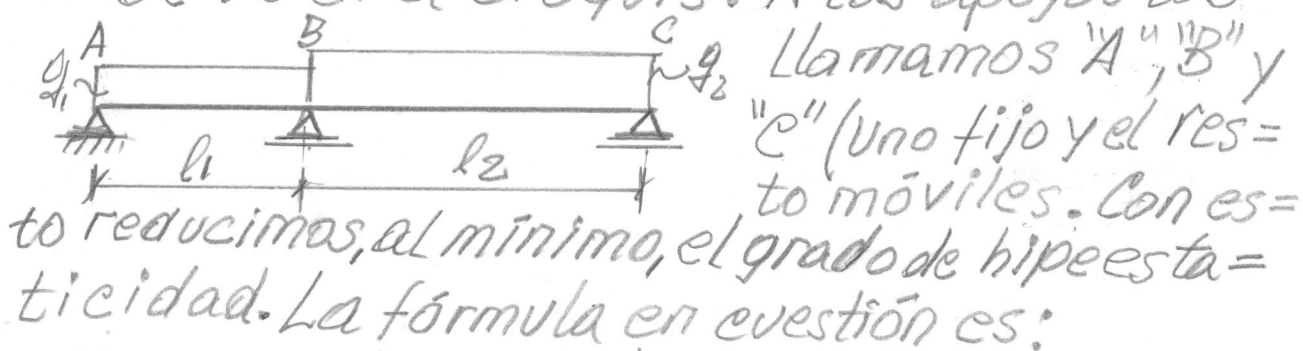 A B C
g₁ g₂
l1 l2
Llamamos "A", "B" y
"C" (uno fijo y el res=
to móviles. Con es=
to reducimos, al mínimo, el grado de hipeesta=
ticidad. La fórmula en cuestión es: